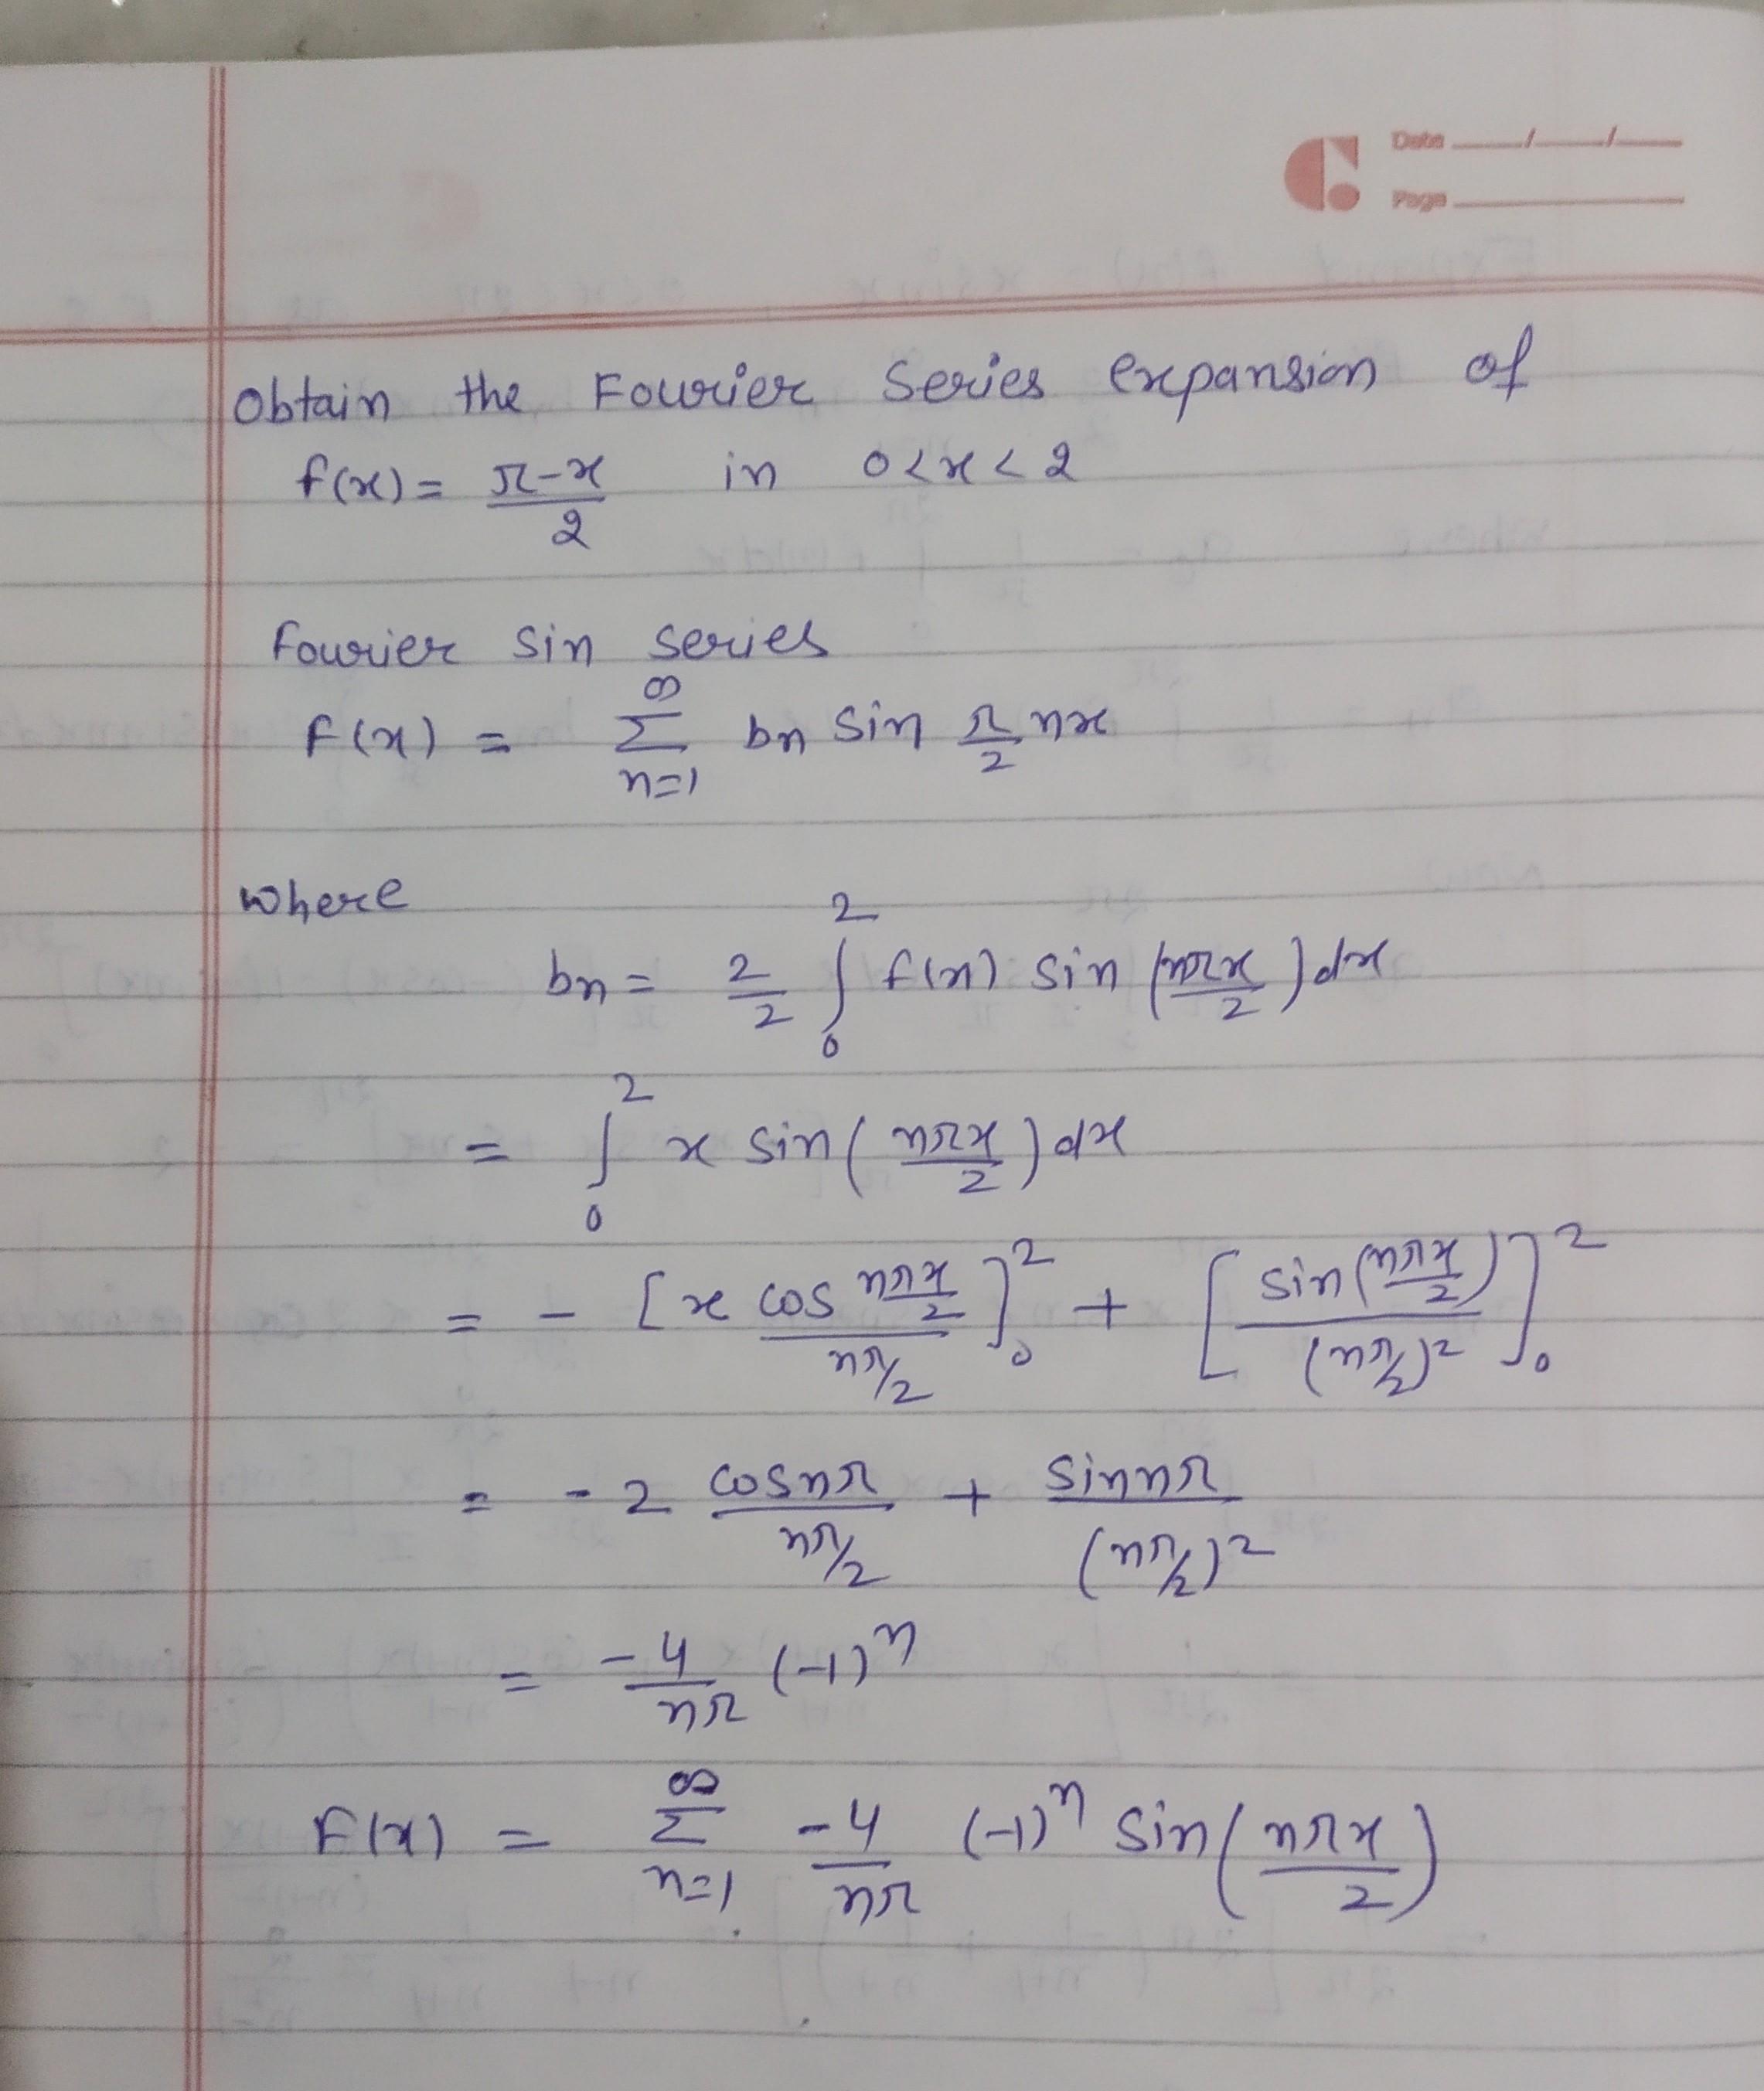 Date __/__/__
Page ____
Obtain the Fourier Series expansion of
f(x) = π-x/2 in 0<x<2
Fourier sin series
f(x) = ∞Σn=1 bn sin π/2 nx
where
bn = 2/2 ∫₀² f(x) sin (nπx/2) dx
= ∫₀² x sin (nπx/2) dx
= - [x cos nπx/2 / nπ/2]₀² + [sin (nπx/2) / (nπ/2)²]₀²
= -2 cos nπ / nπ/2 + sin nπ / (nπ/2)²
= -4/nπ (-1)ⁿ
F(x) = ∞Σn=1 -4/nπ (-1)ⁿ sin (nπx/2)